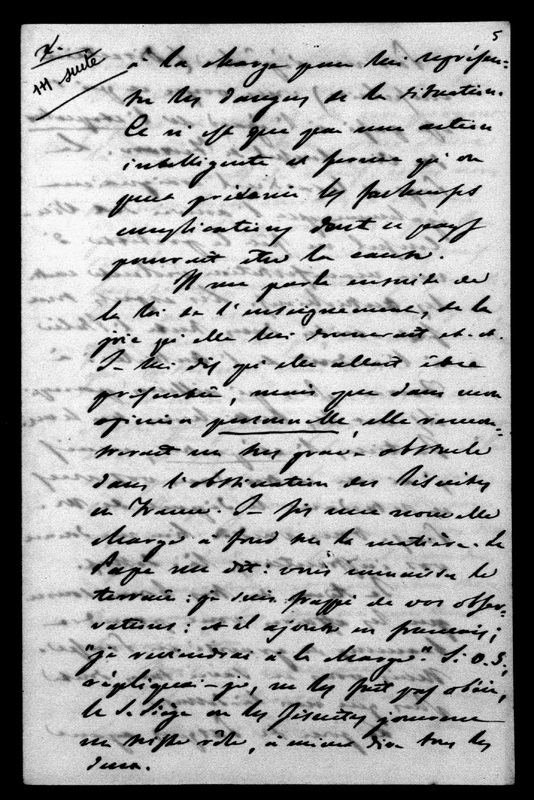 5
suite
à la charge pour lui représen-
ter les dangers de la situation.
Ce n'est que par une action
intelligente et ferme qu'on
peut prévenir les
complications dont ce pays
pourrait être la cause.
Il me parla ensuite de
la loi de l'enseignement, de la
joie qu'elle lui donnerait et. et.
Je lui dis qu'elle allait être
présentée, mais que dans mon
opinion personnelle, elle rencon-
trerait un très grave obstacle
dans l'obstination des Jésuites
en France. Je fis une nouvelle
charge à fond sur la matière. Le
Pape me dit: vous connaissez le
terrain: je suis frappé de vos obser-
vations: et il ajouta en français;
"je reviendrai à la charge". Si V. S.,
répliquai-je, ne les fait pas obéir,
le S. Siège ou les Jésuites joueront
un triste rôle, à mieux dire tous les
deux.